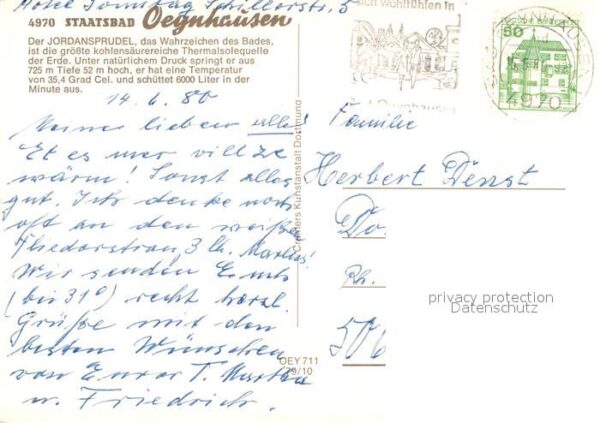 Hotel Sonntag Schillerstr. 5
4970 STAATSBAD Oeynhausen
Der JORDANSPRUDEL, das Wahrzeichen des Bades,
ist die größte kohlensäurereiche Thermalsolequelle
der Erde. Unter natürlichem Druck springt er aus
725 m Tiefe 52 m hoch, er hat eine Temperatur
von 35,4 Grad Cel. und schüttet 6000 Liter in der
Minute aus.
14.6.80
Meine lieben alle!
Et es mer vill ze
wärm! Sonst alles
gut. Ich denke noch
oft an den weißen
3
Wir senden Euch
(bis 31°) recht herzl.
Grüße mit den
besten Wünschen
von Eurer T. Martha
u. Friedrich.
Cramers Kunstanstalt Dortmund
OEY 711
79/10
sich wohlfühlen in
Bad Oeynhausen
50
4970
Familie
Herbert Denst
Do
Rh.
506
privacy protection
Datenschutz